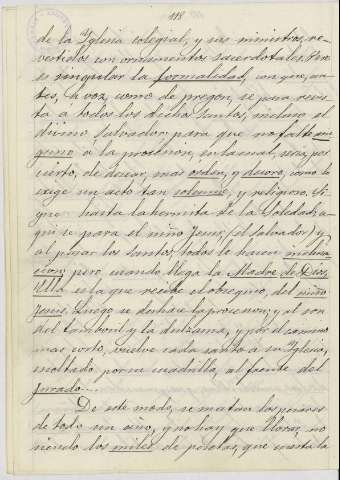 118
de la Iglesia colegial, y sus ministros, re-
vestidos con ornamentos sacerdotales.
es singular la formalidad, con que, an-
tes, á voz, como de pregon, se pasa revis-
ta a todos los dichos Santos, incluso el
divino Salvador; para que no falte nin-
guno á la procesion, en la cual, seria, por
cierto, de desear, mas orden, y decoro, como lo
exige un acto tan solemne, y religioso. Si-
gue hasta la hermita de la Soledad; a-
qui se para el niño Jesus, (el Salvador) y
al pasar los Santos, todos le hacen inclina-
cion; pero cuando llega la Madre de Dios,
Ella es la que recibe el obsequio, del niño
Jesús. Luego se deshace la procesion; y al son
del tamboril y la dulzaina, y por el camino
mas corto, vuelve cada santo a su Iglesia,
escoltado por su cuadrilla, al frente del
Jurado....
De este modo, se matan los pesares
de todo un año, y no hay que llorar, no
siendo los miles de pesetas, que cuesta la